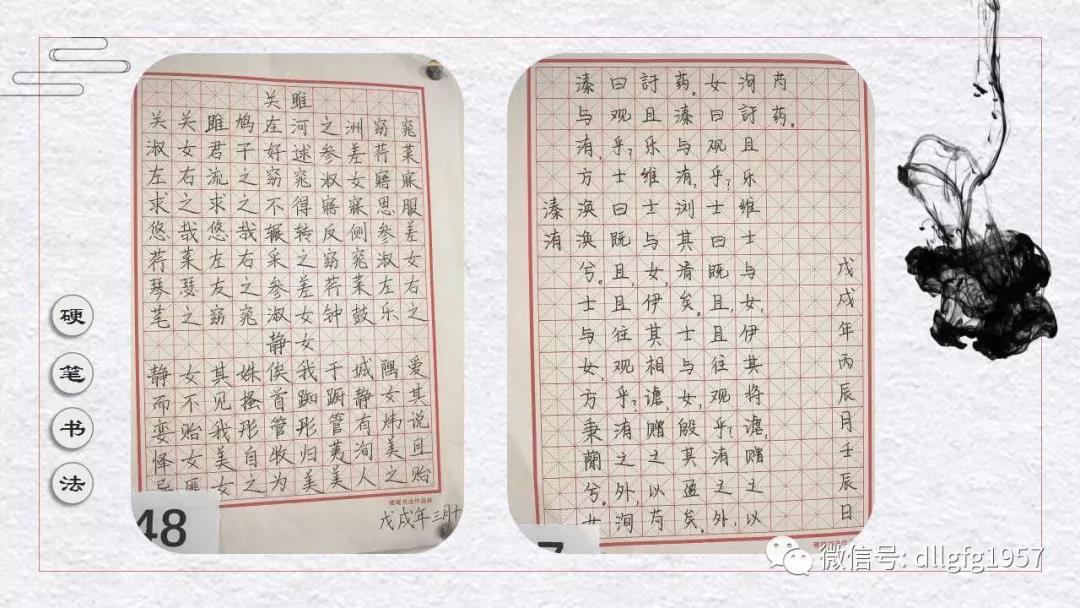 硬笔书法
关雎
关关雎鸠在河之洲窈窕
淑女君子好逑参差荇菜
左右流之窈窕淑女寤寐
求之求之不得寤寐思服
悠哉悠哉辗转反侧参差
荇菜左右采之窈窕淑女
琴瑟友之参差荇菜左右
芼之窈窕淑女钟鼓乐之
静女
静女其姝俟我于城隅爱
而不见搔首踟蹰静女其
娈贻我彤管彤管有炜说
怿女美自牧归荑洵美且
异匪女之为美美人之贻
硬笔书法作品纸
戊戌年三月十
48
溱洧
溱与洧,方涣涣兮。士与女,方秉蕑兮。女
曰观乎?士曰既且,且往观乎?洧之外,洵
訏且乐维士与女,伊其相谑,赠之以芍
药。溱与洧,浏其清矣。士与女,殷其盈矣。
女曰观乎?士曰既且,且往观乎?洧之外,
洵訏且乐维士与女,伊其将谑,赠之以
芍药。
戊戌年丙辰月壬辰日
微信号: dllgfg1957